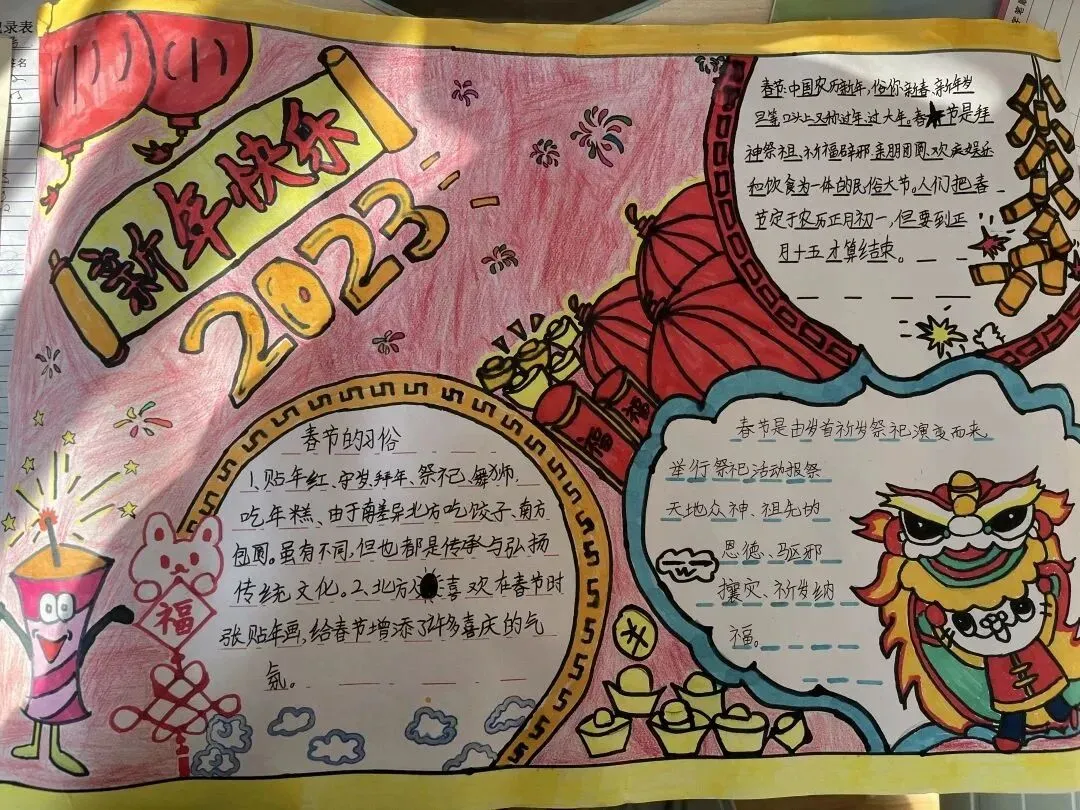 新年快乐
2023
春节:中国农历新年,俗你新春、新年岁
旦等口头上又称过年、过大年。春节是拜
神祭祖、祈福辟邪、亲朋团圆、欢庆娱乐
和饮食为一体的民俗大节。人们把春
节定于农历正月初一,但要到正
月十五才算结束。
福
福
春节的习俗
1、贴年红、守岁、拜年、祭祀、舞狮、
吃年糕、由于南差异北方吃饺子、南方
包圆。虽有不同,但也都是传承与弘扬
传统文化。2、北方人喜欢在春节时
张贴年画,给春节增添了许多喜庆的气
氛。
福
春节是由岁首祈岁祭祀演变而来
举行祭祀活动报祭
天地众神、祖先的
恩德、驱邪
攘灾、祈岁纳
福。